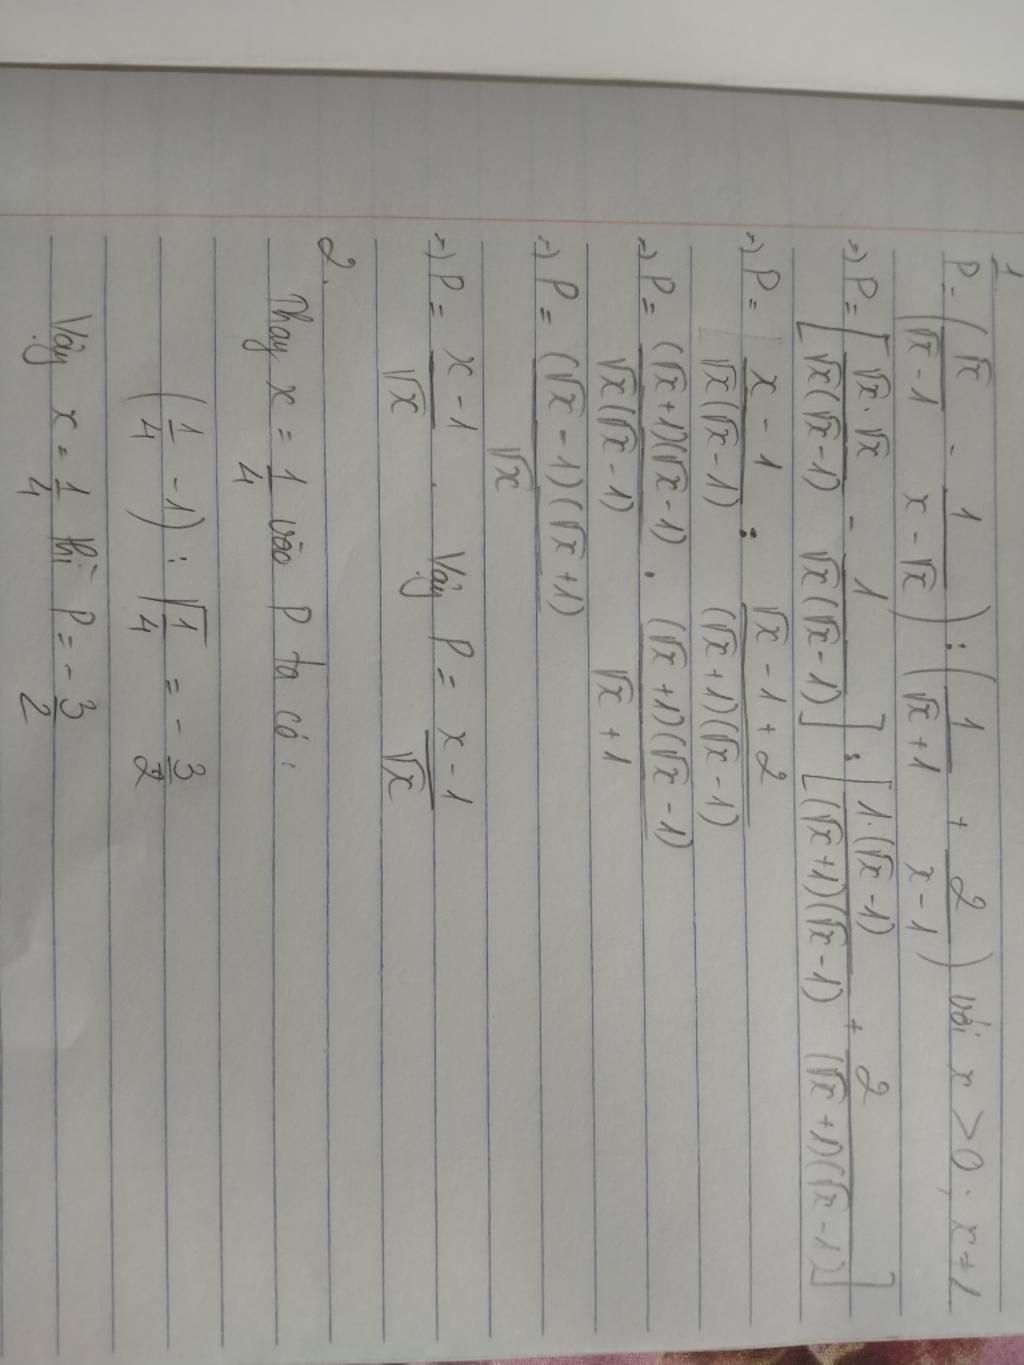 1
P = (√x/(√x - 1) - 1/(x - √x)) : (1/(√x + 1) + 2/(x - 1)) với x > 0, x ≠ 1
=) P = [√x.√x/(√x(√x - 1)) - 1/(√x(√x - 1))] : [1.(√x - 1)/((√x + 1)(√x - 1)) + 2/((√x + 1)(√x - 1))]
=) P = (x - 1)/(√x(√x - 1)) : (√x - 1 + 2)/((√x + 1)(√x - 1))
=) P = (√x + 1)(√x - 1)/(√x(√x - 1)) . (√x + 1)(√x - 1)/(√x + 1)
=) P = (√x - 1)(√x + 1)/√x
=) P = (x - 1)/√x . Vậy P = (x - 1)/√x
2.
Thay x = 1/4 vào P ta có:
(1/4 - 1) : √(1/4) = - 3/2
Vậy x = 1/4 thì P = - 3/2